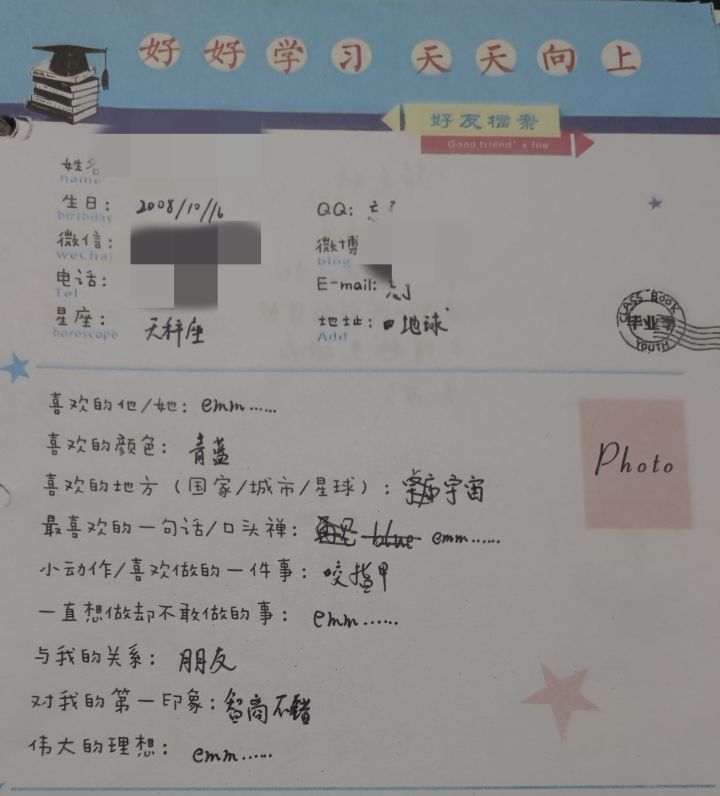 好好学习 天天向上
好友檔案
Good friend's file
姓名
name
生日: 2008/10/16 QQ: 忘了
birthday
微信: 微博
WeChat blog
电话: E-mail: 忘了
Tel
星座: 天秤座 地址: 地球
horoscope Add
CLASS BOOK
YOUTH
喜欢的他/她: emm……
喜欢的颜色: 青蓝
喜欢的地方(国家/城市/星球): 宇宙
Photo
最喜欢的一句话/口头禅: blue emm……
小动作/喜欢做的一件事: 咬指甲
一直想做却不敢做的事: emm……
与我的关系: 朋友
对我的第一印象: 智商不错
伟大的理想: emm……